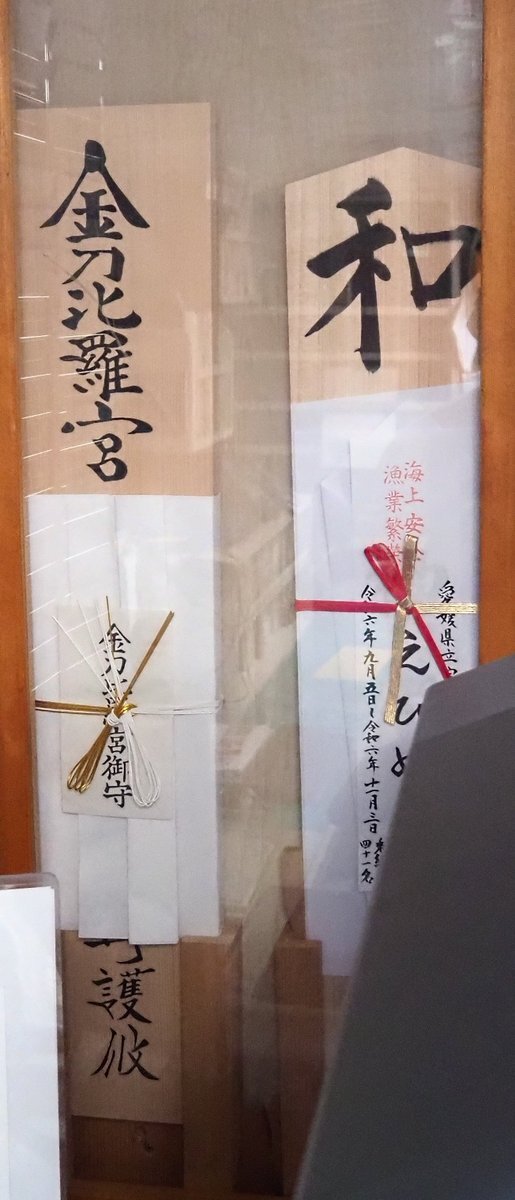 金刀比羅宮
金刀比羅宮御守
護攸
和
海上安全
漁業繁栄
愛媛県立
えひめ
令和六年九月五日〜令和六年十一月三日
四十一名